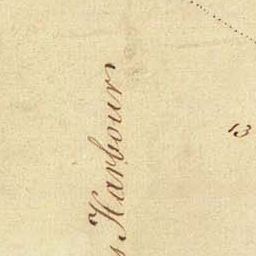 s Harbour
13